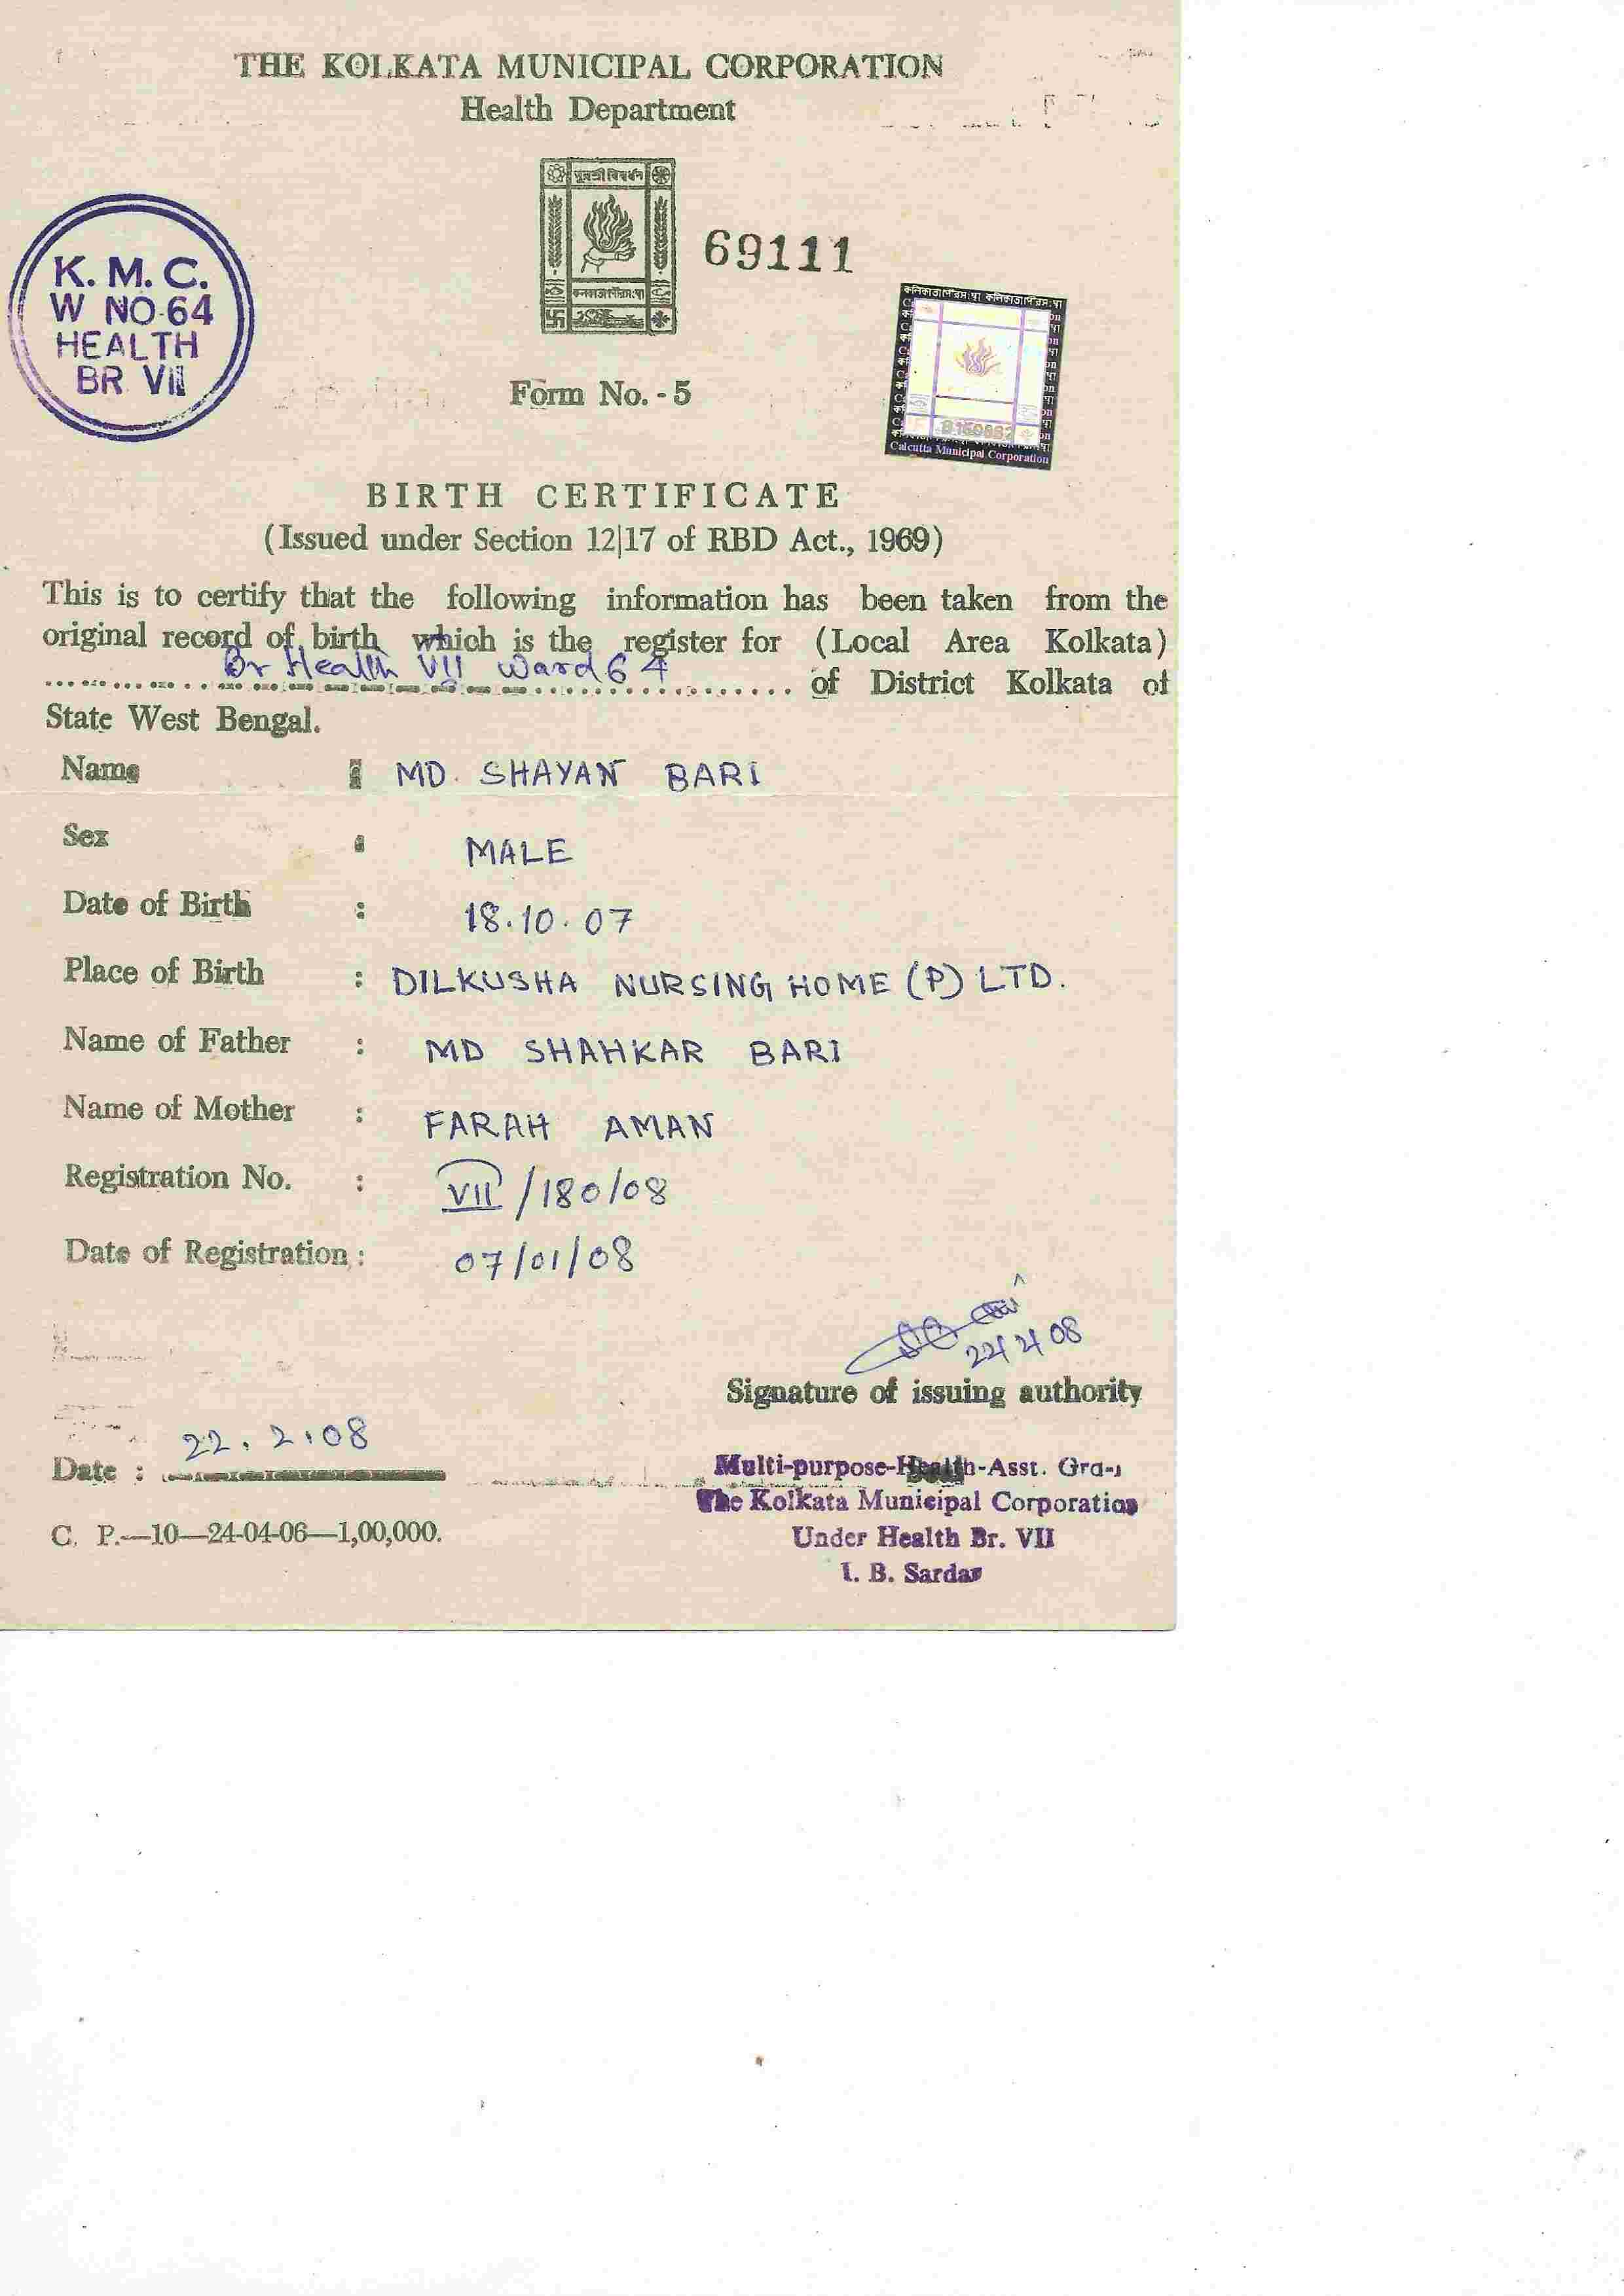 THE KOLKATA MUNICIPAL CORPORATION
Health Department
পুরশ্রী বিবর্ধন
69111
K. M. C.
W NO-64
HEALTH
BR VII
কলিকাতা পৌরসংস্থা কলিকাতা পৌরসংস্থা
Calcutta Municipal Corporation
Form No. - 5
BIRTH CERTIFICATE
(Issued under Section 12|17 of RBD Act., 1969)
This is to certify that the following information has been taken from the
original record of birth which is the register for (Local Area Kolkata)
Br Health VII Ward 64 of District Kolkata of
State West Bengal.
Name : MD. SHAYAN BARI
Sex : MALE
Date of Birth : 18.10.07
Place of Birth : DILKUSHA NURSING HOME (P) LTD.
Name of Father : MD SHAHKAR BARI
Name of Mother : FARAH AMAN
Registration No. : VII/180/08
Date of Registration : 07/01/08
22/2/08
Signature of issuing authority
Date : 22.2.08
Multi-purpose-Health-Asst.
The Kolkata Municipal Corporation
Under Health Br. VII
I. B. Sardar
C. P.—10—24-04-06—1,00,000.